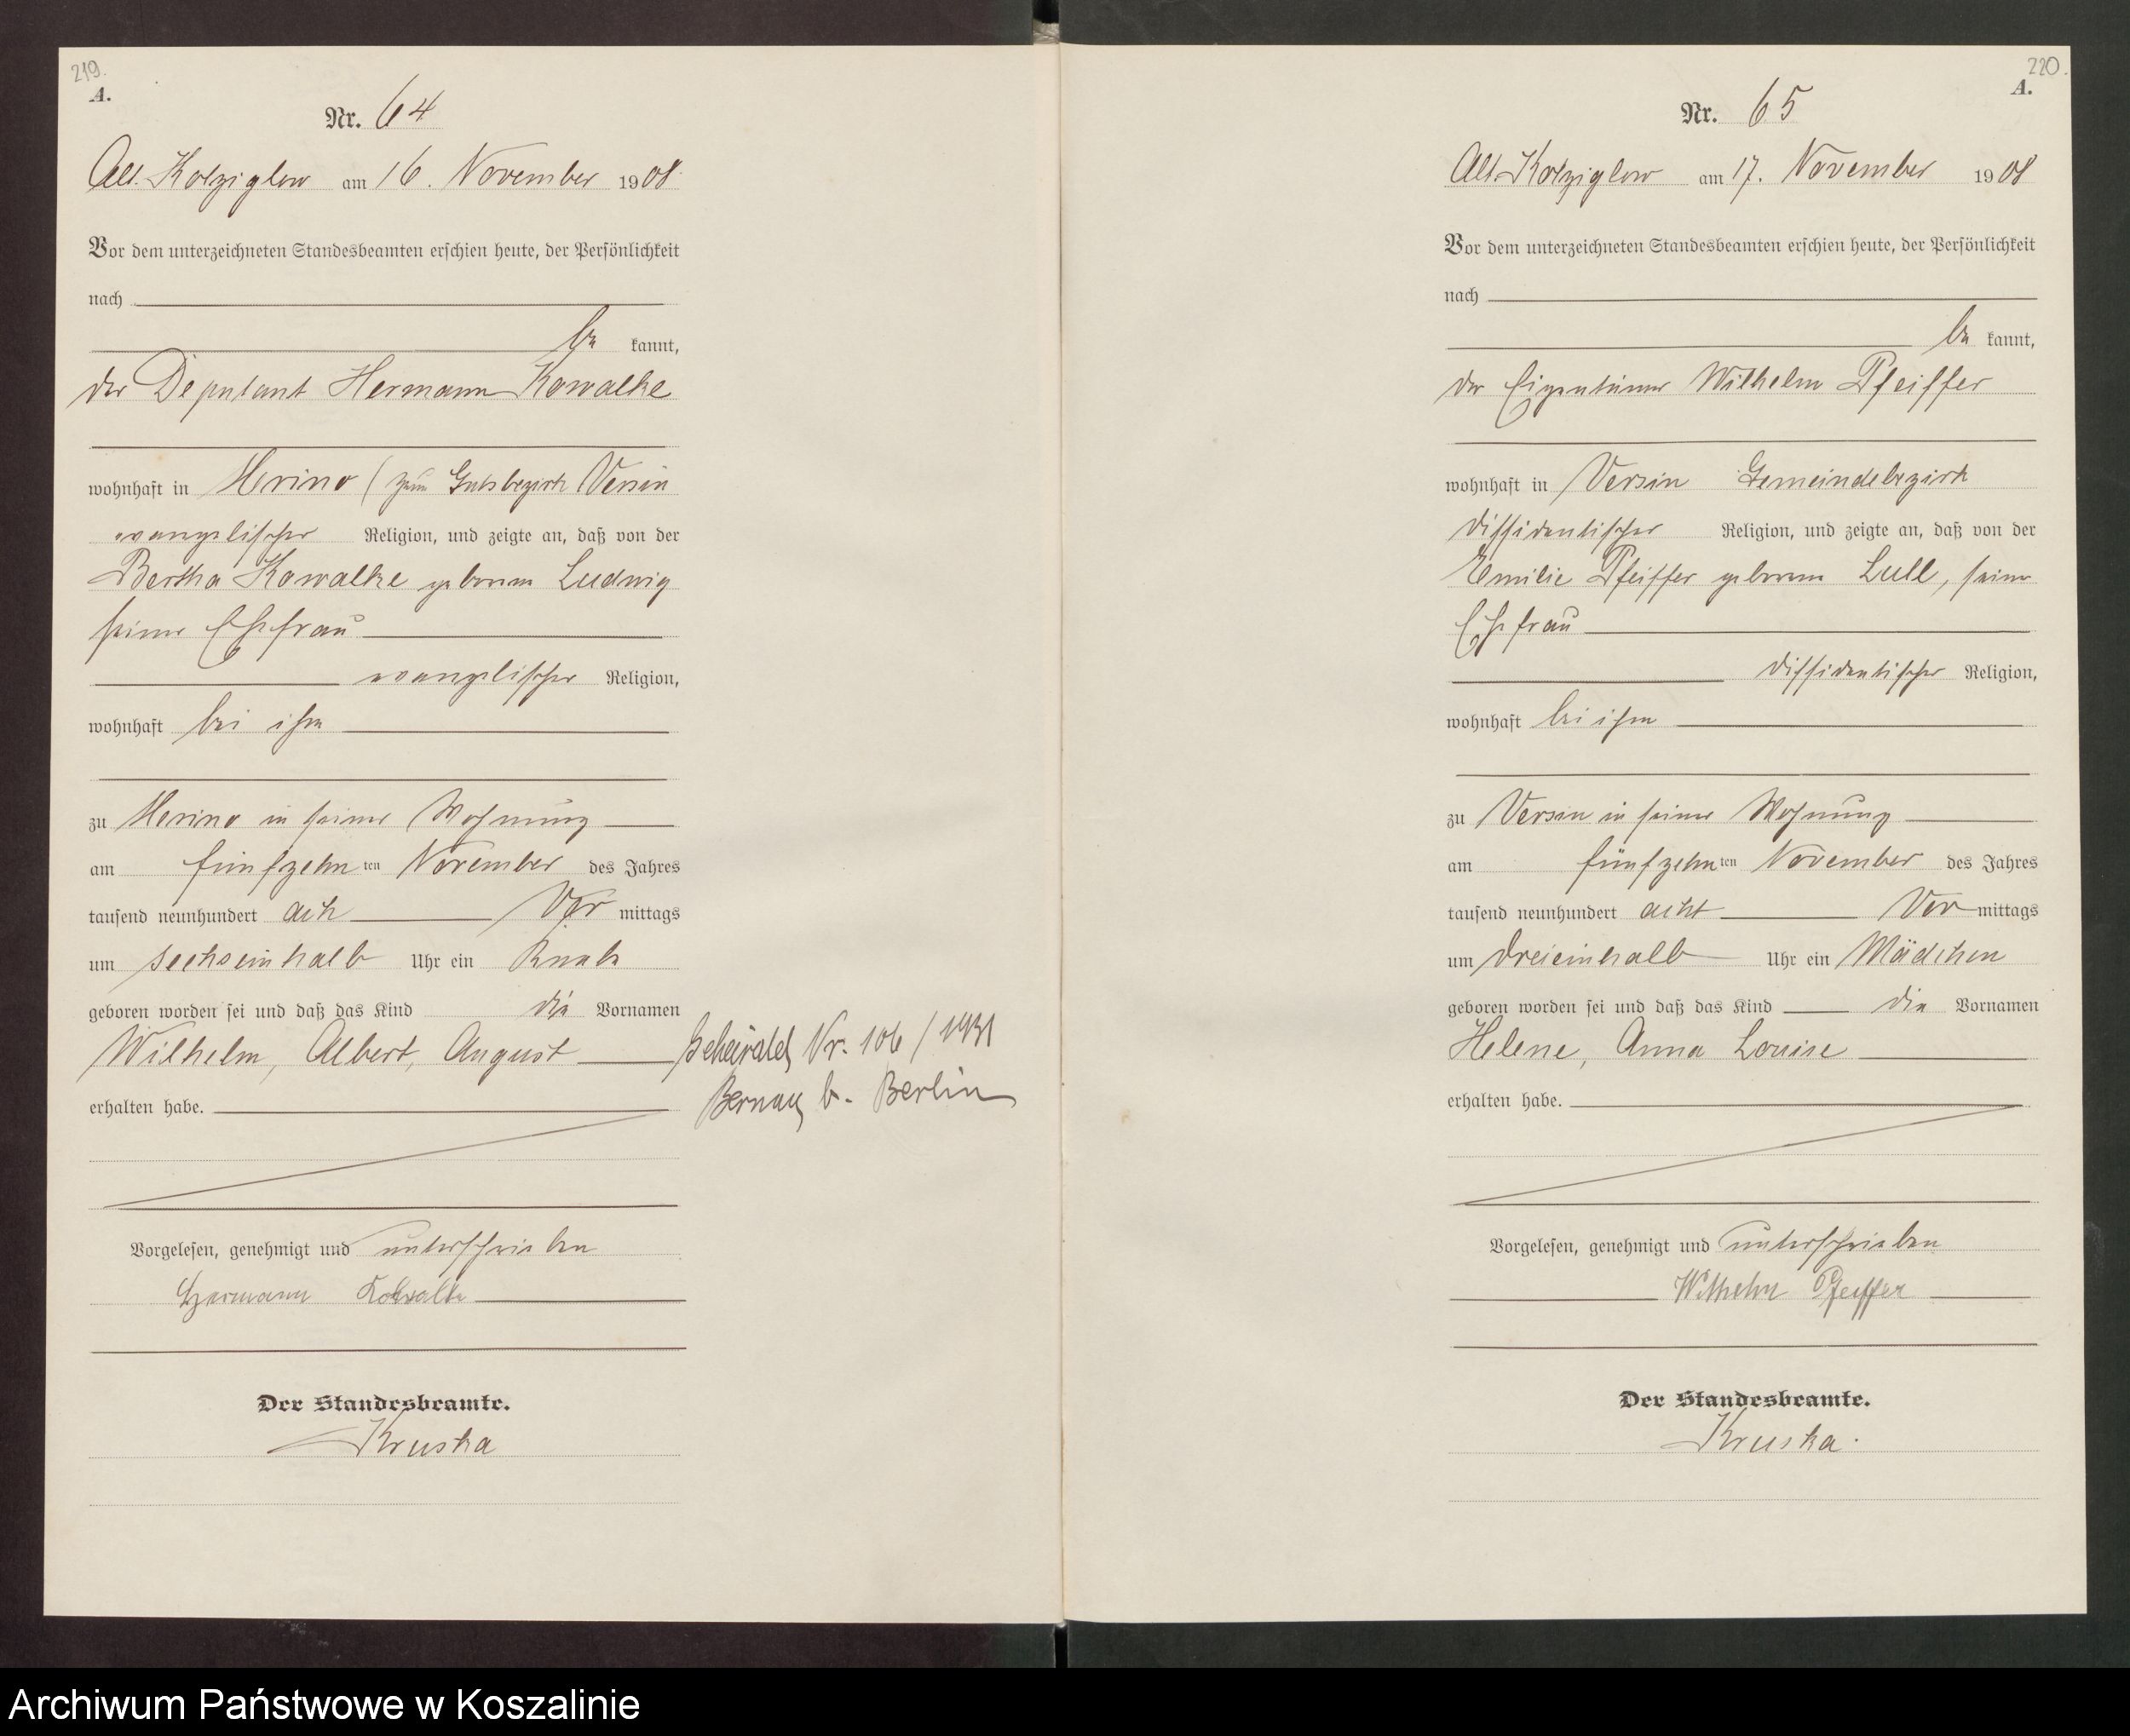 219.
A.
Nr. 64
Alt. Kolziglow am 16. November 1908
Vor dem unterzeichneten Standesbeamten erschien heute, der Persönlichkeit
nach
be kannt,
der Deputant Hermann Kowalke
wohnhaft in Merino (zum Gutsbezirk Versin
evangelischer Religion, und zeigte an, daß von der
Bertha Kowalke geborenen Ludwig
seiner Ehefrau
evangelischer Religion,
wohnhaft bei ihm
zu Merino in seiner Wohnung
am fünfzehn ten November des Jahres
tausend neunhundert acht Vor mittags
um sechseinhalb Uhr ein Knabe
geboren worden sei und daß das Kind die Vornamen
Wilhelm, Albert, August
erhalten habe.
Geheiratet Nr. 106 / 1931
Bernau b. Berlin
Vorgelesen, genehmigt und unterschrieben
Hermann Kowalke
Der Standesbeamte.
Kruska
220.
A.
Nr. 65
Alt-Kolziglow am 17. November 1908
Vor dem unterzeichneten Standesbeamten erschien heute, der Persönlichkeit
nach
be kannt,
der Eigentümer Wilhelm Pfeiffer
wohnhaft in Versin Gemeindebezirk
dissidentischer Religion, und zeigte an, daß von der
Emilie Pfeiffer geborenen Lull, seiner
Ehefrau
dissidentischer Religion,
wohnhaft bei ihm
zu Versin in seiner Wohnung
am fünfzehn ten November des Jahres
tausend neunhundert acht Vor mittags
um dreieinhalb Uhr ein Mädchen
geboren worden sei und daß das Kind die Vornamen
Helene, Anna Louise
erhalten habe.
Vorgelesen, genehmigt und unterschrieben
Wilhelm Pfeiffer
Der Standesbeamte.
Kruska.
Archiwum Państwowe w Koszalinie